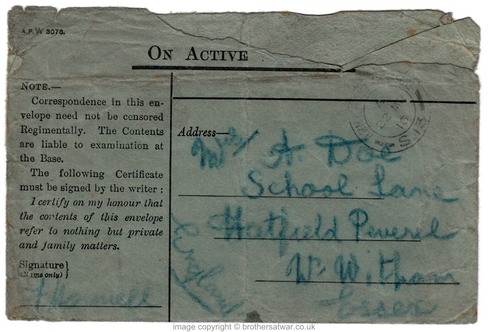 A.F.W 3078.
ON ACTIVE
NOTE.—
Correspondence in this en-
velope need not be censored
Regimentally. The Contents
are liable to examination at
the Base.
The following Certificate
must be signed by the writer :
I certify on my honour that
the contents of this envelope
refer to nothing but private
and family matters.
Signature
(Name only)
Address—
Mrs A. Doe
School Lane
Hatfield Peverel
Nr Witham
Essex
England
image copyright © brothersatwar.co.uk